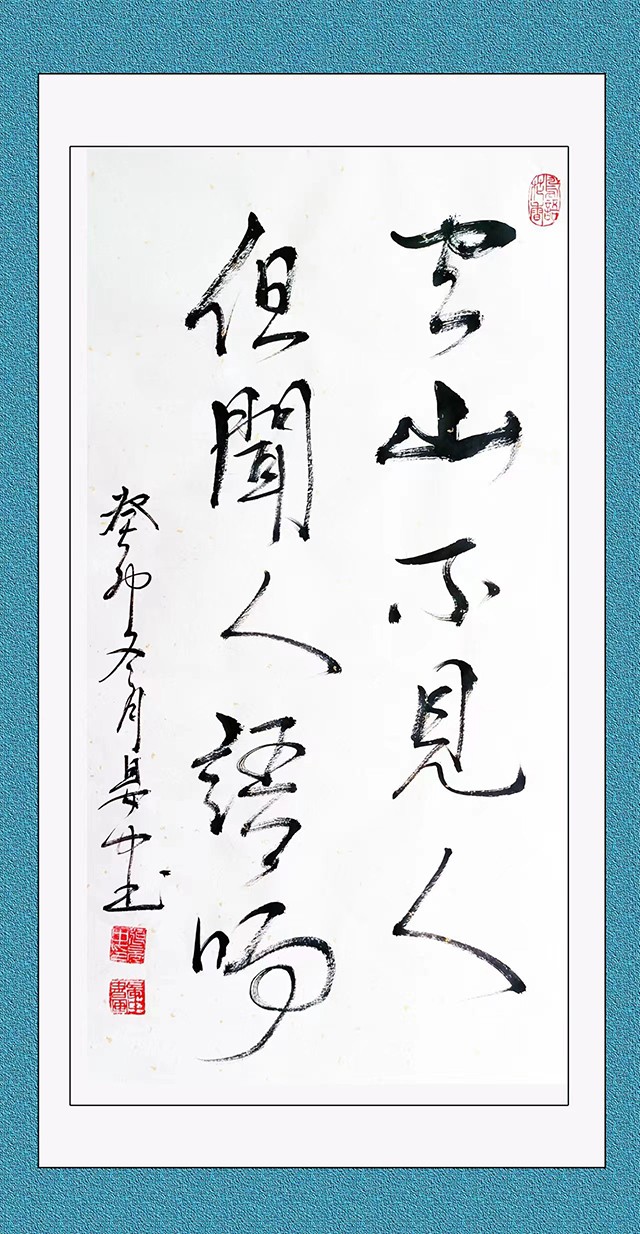 空山不見人
但聞人語响
癸卯冬月晏中